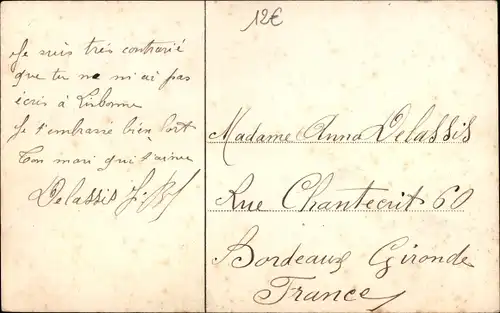 12€
Je suis très contrarié
que tu ne m'ai pas
écris à Lisbonne
Je t'embrasse bien fort
Ton mari qui t'aime
Delassis
Madame Anna Delassis
Rue Chantecrit 60
Bordeaux Gironde
France